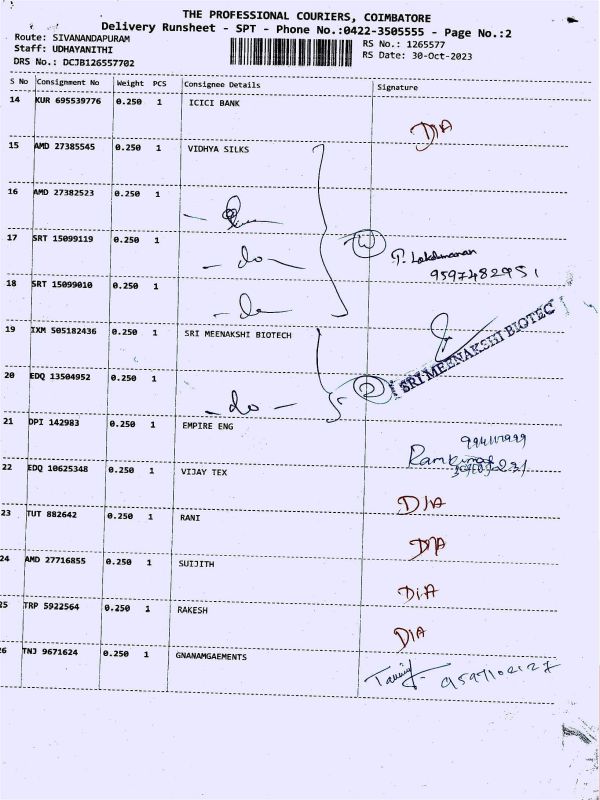 THE PROFESSIONAL COURIERS, COIMBATORE
Delivery Runsheet - SPT - Phone No.:0422-3505555 - Page No.:2
Route: SIVANANDAPURAM
RS No.: 1265577
Staff: UDHAYANITHI
RS Date: 30-Oct-2023
DRS No.: DCJB126557702
S No Consignment No Weight PCS Consignee Details Signature
14 KUR 695539776 0.250 1 ICICI BANK
D/A
15 AMD 27385545 0.250 1 VIDHYA SILKS
16 AMD 27382523 0.250 1
17 SRT 15099119 0.250 1 - do -
4
P. Lakshmanan
9597482951
18 SRT 15099010 0.250 1 - do
19 IXM 505182436 0.250 1 SRI MEENAKSHI BIOTECH
SRI MEENAKSHI BIOTEC
20 EDQ 13504952 0.250 1 - do -
2
21 DPI 142983 0.250 1 EMPIRE ENG
Ramkumar
22 EDQ 10625348 0.250 1 VIJAY TEX
D/A
23 TUT 882642 0.250 1 RANI
D/A
24 AMD 27716855 0.250 1 SUIJITH
D/A
25 TRP 5922564 0.250 1 RAKESH
D/A
26 TNJ 9671624 0.250 1 GNANAMGAEMENTS